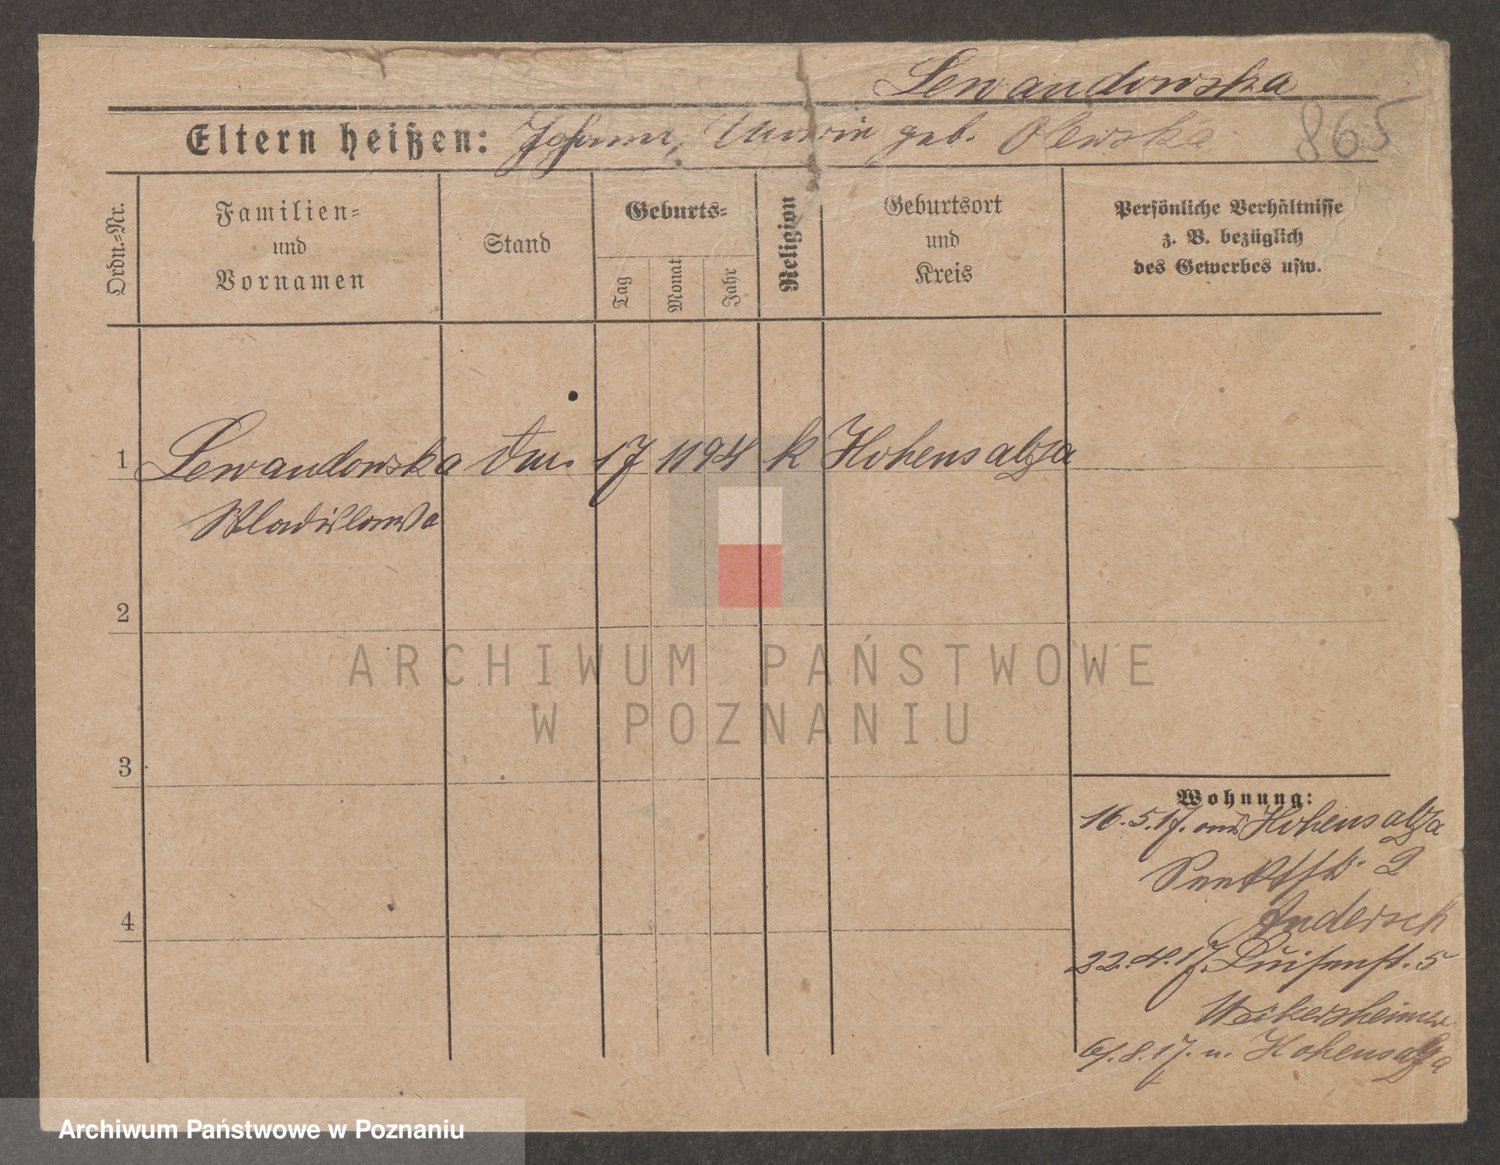 Lewandowska
Eltern heißen: Johann, geb. Olewska 865
Ordn.=Nr.
Familien=
und
Vornamen
Stand
Geburts=
Tag
Monat
Jahr
Religion
Geburtsort
und
Kreis
Persönliche Verhältnisse
z. B. bezüglich
des Gewerbes usw.
1 Lewandowska 17 11 94 k Hohensalza
Wladislawa
2
3
4
Wohnung:
16.5.17. aus Hohensalza
2
Andersch
22. 17. Luisenst. 5
Weikersheimer
6/.8.17. n. Hohensalza
ARCHIWUM PAŃSTWOWE
W POZNANIU
Archiwum Państwowe w Poznaniu